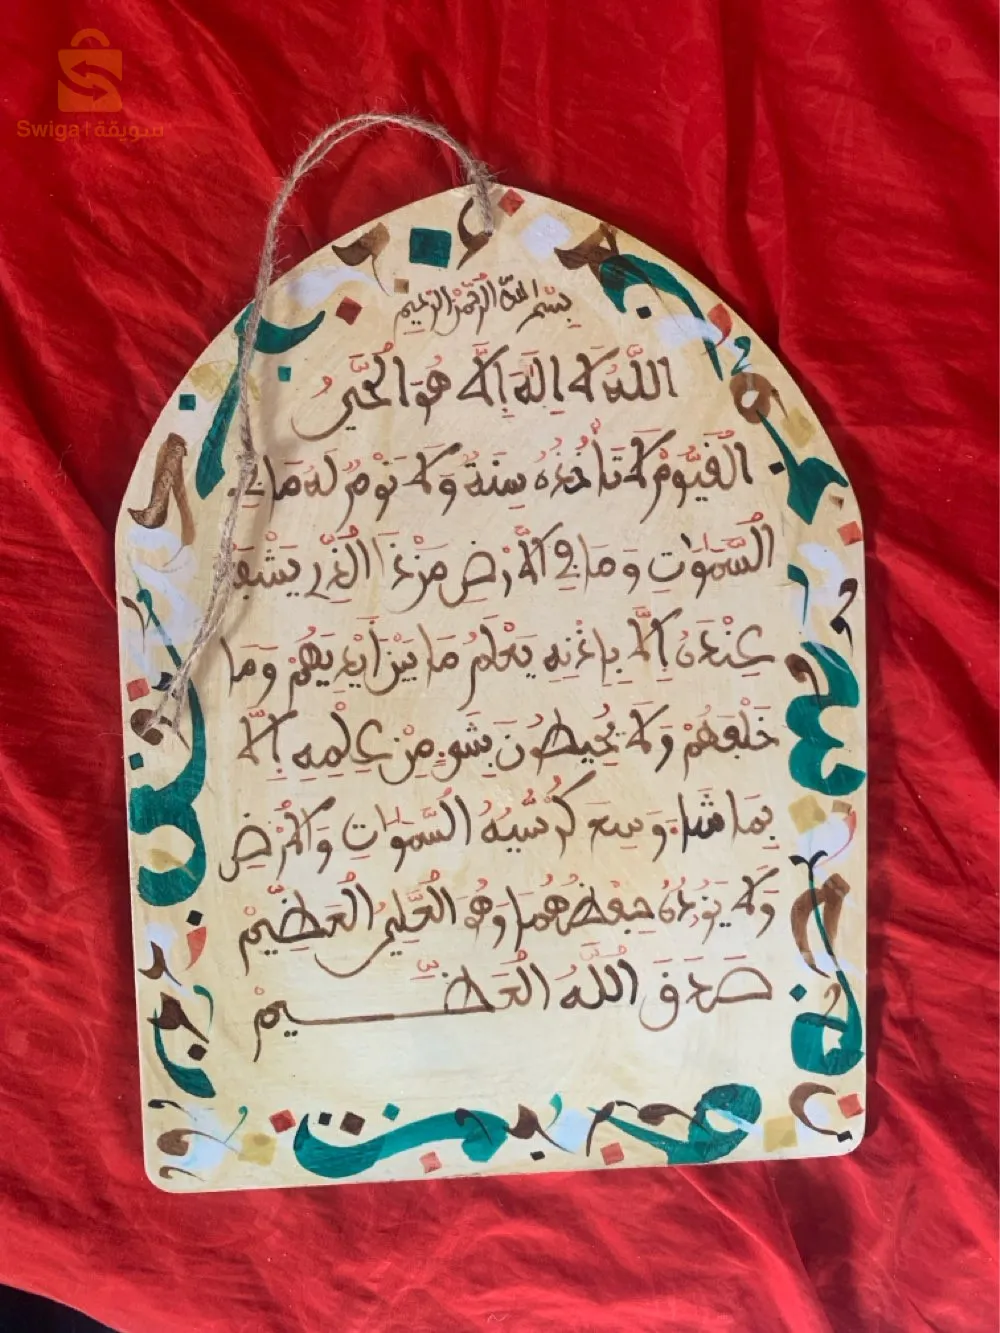 Swiga | سويقة
بِسْمِ اللَّهِ الرَّحْمَٰنِ الرَّحِيمِ
اللَّهُ لَا إِلَهَ إِلَّا هُوَ الْحَيُّ
الْقَيُّومُ لَا تَأْخُذُهُ سِنَةٌ وَلَا نَوْمٌ لَهُ مَا فِي
السَّمَوَاتِ وَمَا فِي الْأَرْضِ مَنْ ذَا الَّذِي يَشْفَعُ
عِنْدَهُ إِلَّا بِإِذْنِهِ يَعْلَمُ مَا بَيْنَ أَيْدِيهِمْ وَمَا
خَلْفَهُمْ وَلَا يُحِيطُونَ بِشَيْءٍ مِنْ عِلْمِهِ إِلَّا
بِمَا شَاءَ وَسِعَ كُرْسِيُّهُ السَّمَوَاتِ وَالْأَرْضَ
وَلَا يَؤُدُهُ حِفْظُهُمَا وَهُوَ الْعَلِيُّ الْعَظِيمُ
صَدَقَ اللَّهُ الْعَظِيمُ